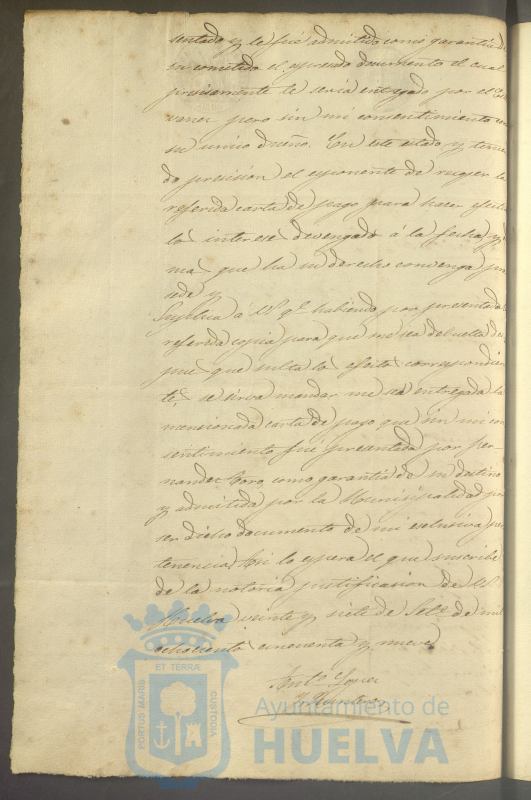 sentado y le fué admitido como garantía de
su cometido el espresado documento el cual
previamente le seria entregado por el
pero sin mi consentimiento
su unico dueño. En este estado y tenien
do precision el esponente de recojer la
referida carta de pago para hacer efecti
los intereses devengados á la fecha y
mas que ha su derecho convenga, pro
cede y
Suplica á V. q.e habiendo por presentada
referida copia para que me sea debuelta des
pues que surta los efectos correspondien
tes, se sirva mandar me sea entregada la
mensionada carta de pago que sin mi con
sentimiento fué presentada por Fer
nandez Toro como garantia de su destino
y admitida por la Municipalidad por
ser dicho documento de mi esclusiva per
tenencia. Asi lo espera el que suscribe
de la notoria justificasion de V.
Huelva veinte y siete de Set.e de mil
ochosientos cincuenta y nueve
Ant.o
ET TERRÆ
PORTUS MARIS
CUSTODIA
Ayuntamiento de
HUELVA